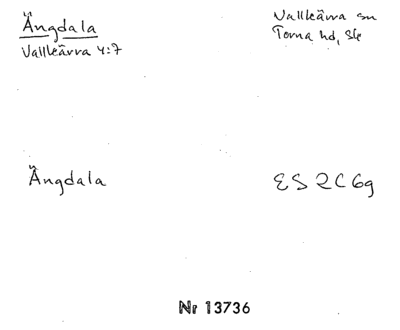 Ängdala
Vallkärra 4:7
Vallkärra sn
Torna hd, Sk
Ängdala
ES 2C6g
Nr 13736